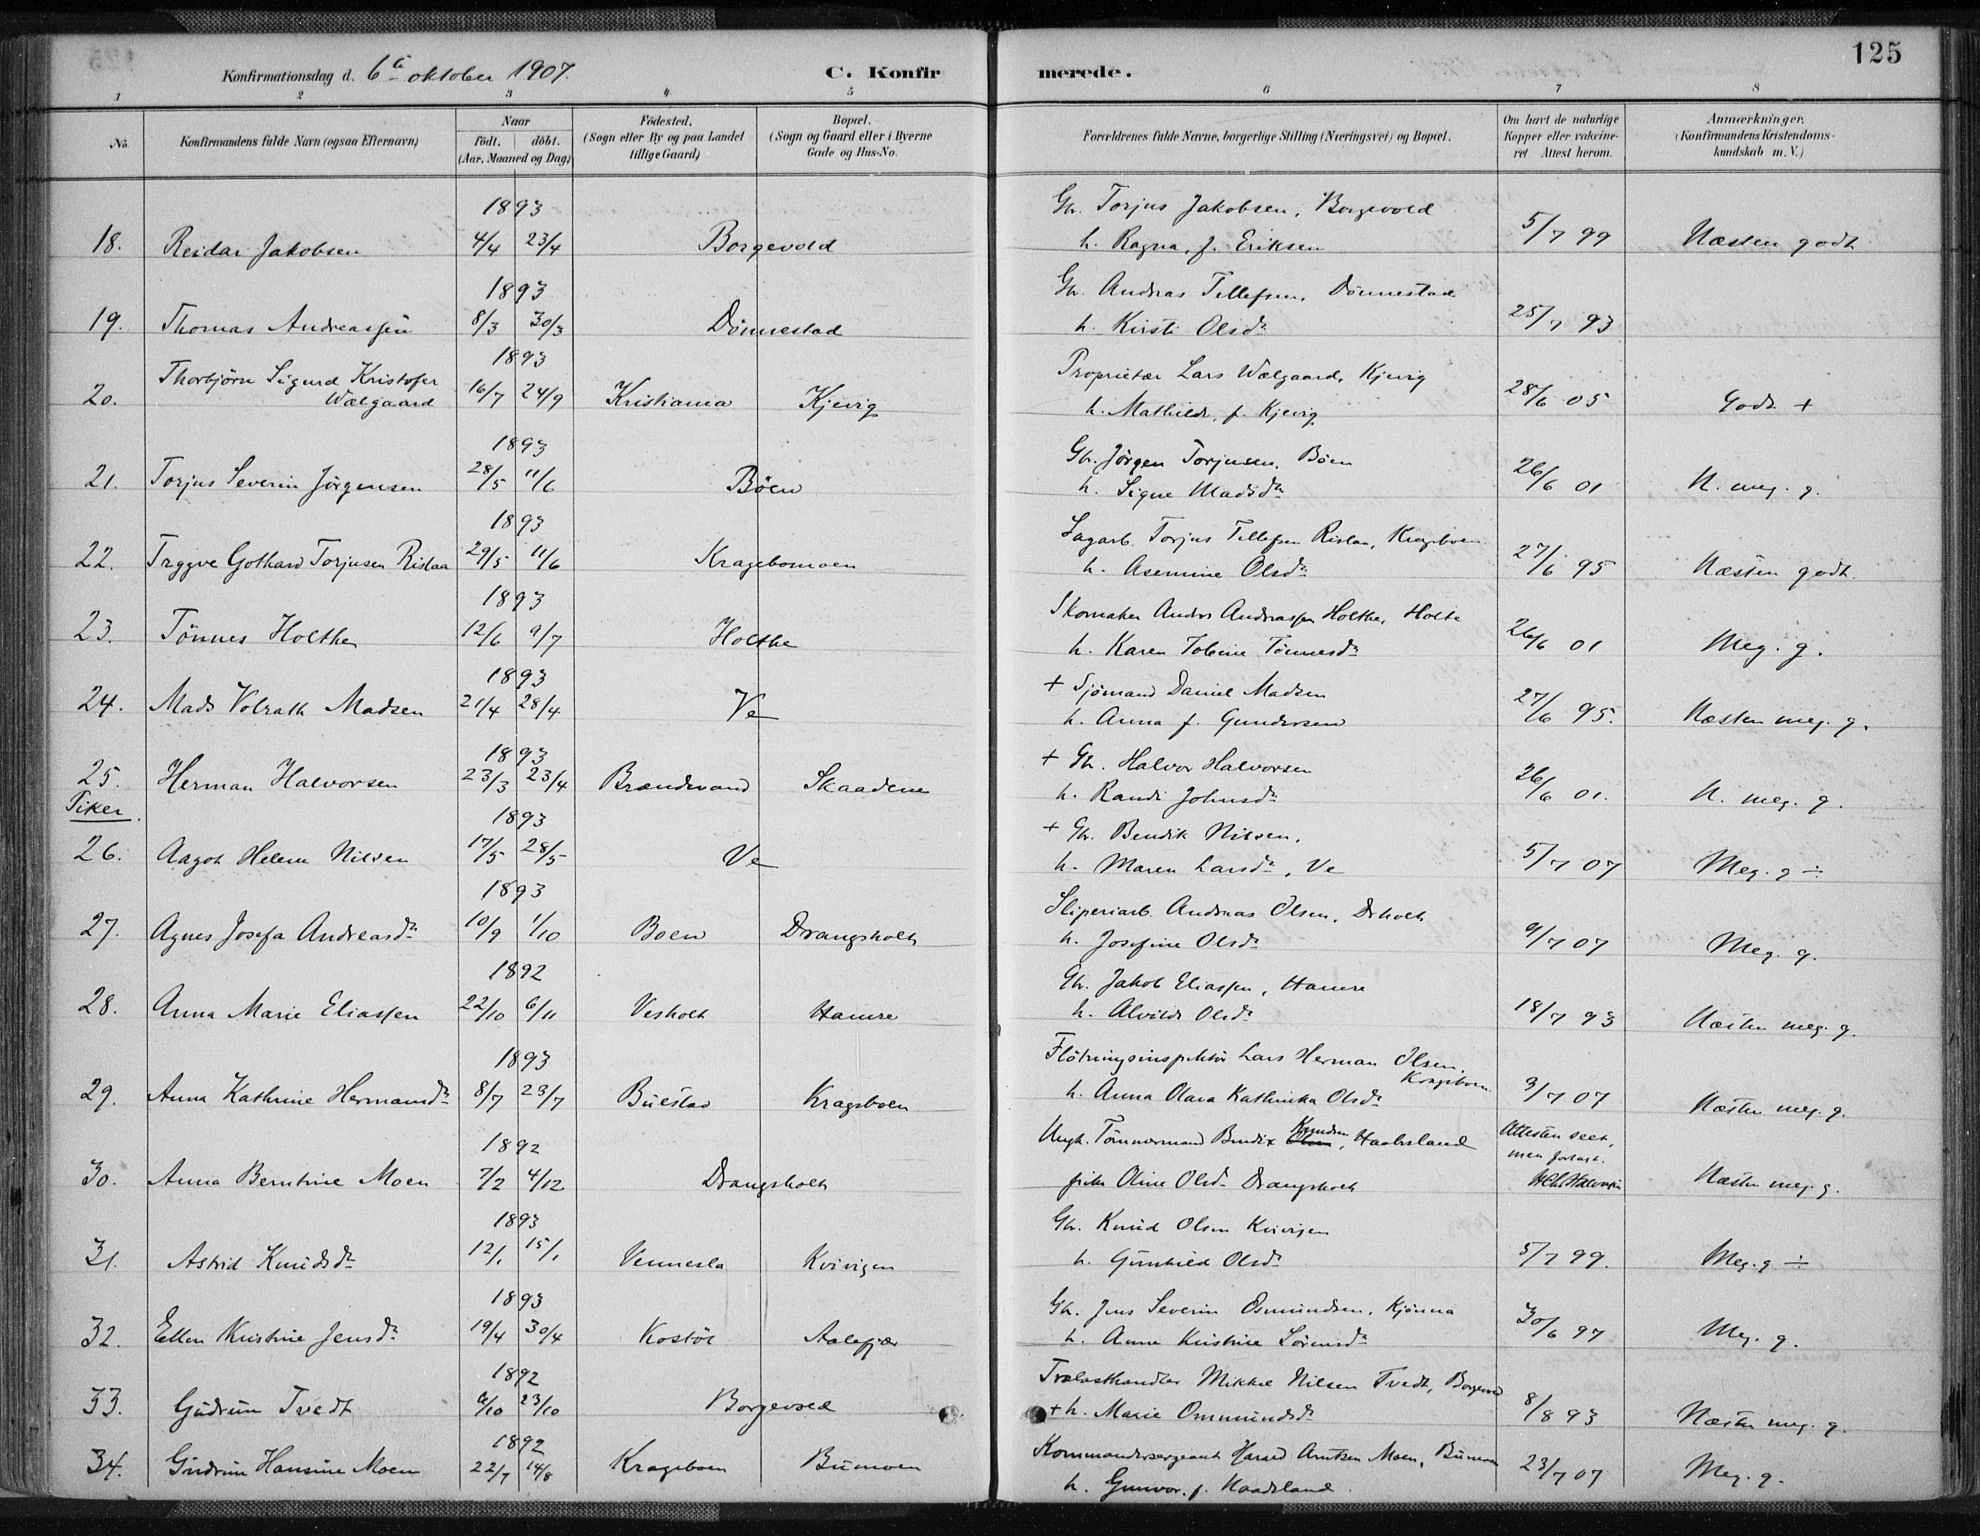 125
Konfirmationsdag d. 6te oktober 1907.
C. Konfirmerede.
1 2 3 4 5 6 7 8
No.
Konfirmandens fulde Navn (ogsaa Efternavn)
Naar
født. døbt.
(Aar, Maaned og Dag)
Fødested.
(Sogn eller By og paa Landet
tillige Gaard)
Bopæl.
(Sogn og Gaard eller i Byerne
Gade og Hus-No.
Forældrenes fulde Navne, borgerlige Stilling (Næringsvei) og Bopæl.
Om havt de naturlige
Kopper eller vaksine-
ret Attest herom.
Anmærkninger.
(Konfirmandens Kristendoms-
kundskab m. V.)
1893
Gb. Torjus Jakobsen, Borgevold
18. Reidar Jakobsen 4/4 23/4 Borgevold h. Ragna, f. Eriksen 5/7 99 Næsten godt
1893
Gb. Andreas Tellefsen, Dönnestad
19. Thomas Andreassen 8/3 30/3 Dönnestad h. Kirsti Olsdr 25/7 93
1893
Proprietær Lars Wælgaard, Kjevig
20. Thorbjörn Sigurd Kristofer
Wælgaard 16/7 24/9 Kristiania Kjevig h. Mathilde, f. Kjevig 28/6 05 Godt +
1893
Gb. Jörgen Torjusen, Böen
21. Torjus Severin Jörgensen 28/5 11/6 Böen h. Signe Madsdr 26/6 01 N. meg. g.
1893
Sagarb. Torjus Tellefsen Rislaa, Krageboen
22. Tryggve Gothard Torjusen Rislaa 29/5 11/6 Kragebomoen h. Asemine Olsdr 27/6 95 Næsten godt.
1893
Skomaker Anders Andreassen Holthe, Holte
23. Tönnes Holthe 12/6 9/7 Holthe h. Karen Tobine Tönnesdr 26/6 01 Meg. g.
1893
+ Sjömand Daniel Madsen
24. Mads Volrath Madsen 21/4 28/4 Ve h. Anna f. Gundersen 27/6 95. Næsten meg. g.
1893
+ Gb. Halvor Halvorsen
25. Herman Halvorsen 23/3 23/4 Brændvand Skaadene h. Randi Johnsdr 26/6 01. N. meg. g.
Piker.
1893
+ Gb. Bendik Nilsen,
26. Aagot Helene Nilsen 17/5 28/5 Ve h. Maren Larsdr, Ve 5/7 07 Meg. g ÷
1893
Sliperiarb. Andreas Olsen, Drholt
27. Agnes Josefa Andreasdr 10/9 1/10 Boen Drangsholt h. Josefine Olsdr 9/7 07 Meg. g.
1892
Gb. Jakob Eliassen, Hamre
28. Anna Marie Eliassen 22/10 6/11 Vesholt Hamre h. Alvilde Olsdr 18/7 93 Næsten meg. g.
1893
Flötningsinspektör Lars Herman Olsen,
Krageboen.
29. Anna Kathrine Hermansdr 8/7 23/7 Buestad Kragsboen h. Anna Olava Kathinka Olsdr 3/7 07 Næsten meg. g.
1892
Ungk. Tömmermand Bendix Knudsen, Haabesland
Attesten seet,
men fortabt.
30. Anna Berntine Moen 7/2 4/12 Drangsholt pike Oline Olsdr Drangsholt Næsten meg. g.
1893
Gb. Knud Olsen Kvivigen
31. Astrid Knudsdr 12/1 15/1 Vennesla Kvivigen h. Gunhild Olsdr 5/7 99. Meg. g ÷
1893
Gb. Jens Severin Osmundsen, Kjönna
32. Ellen Kristine Jensdr 19/4 30/4 Kostöl Aalefjær h. Anne Kristine Sörensdr 30/6 97 Meg. g.
1892
Trælasthandler Mikkel Nilsen Tvedt, Borgevold
33. Gudrun Tvedt 6/10 23/10 Borgevold + h. Marie Ommundsdr 8/8 93 Næsten meg. g.
1892
Kommandersergeant Harald Arntsen Moen, Bumoen
34. Gudrun Hansine Moen 22/7 14/8 Krageboen Bumoen h. Gunvor f. Kaadsland 23/7 07 Meg. g.